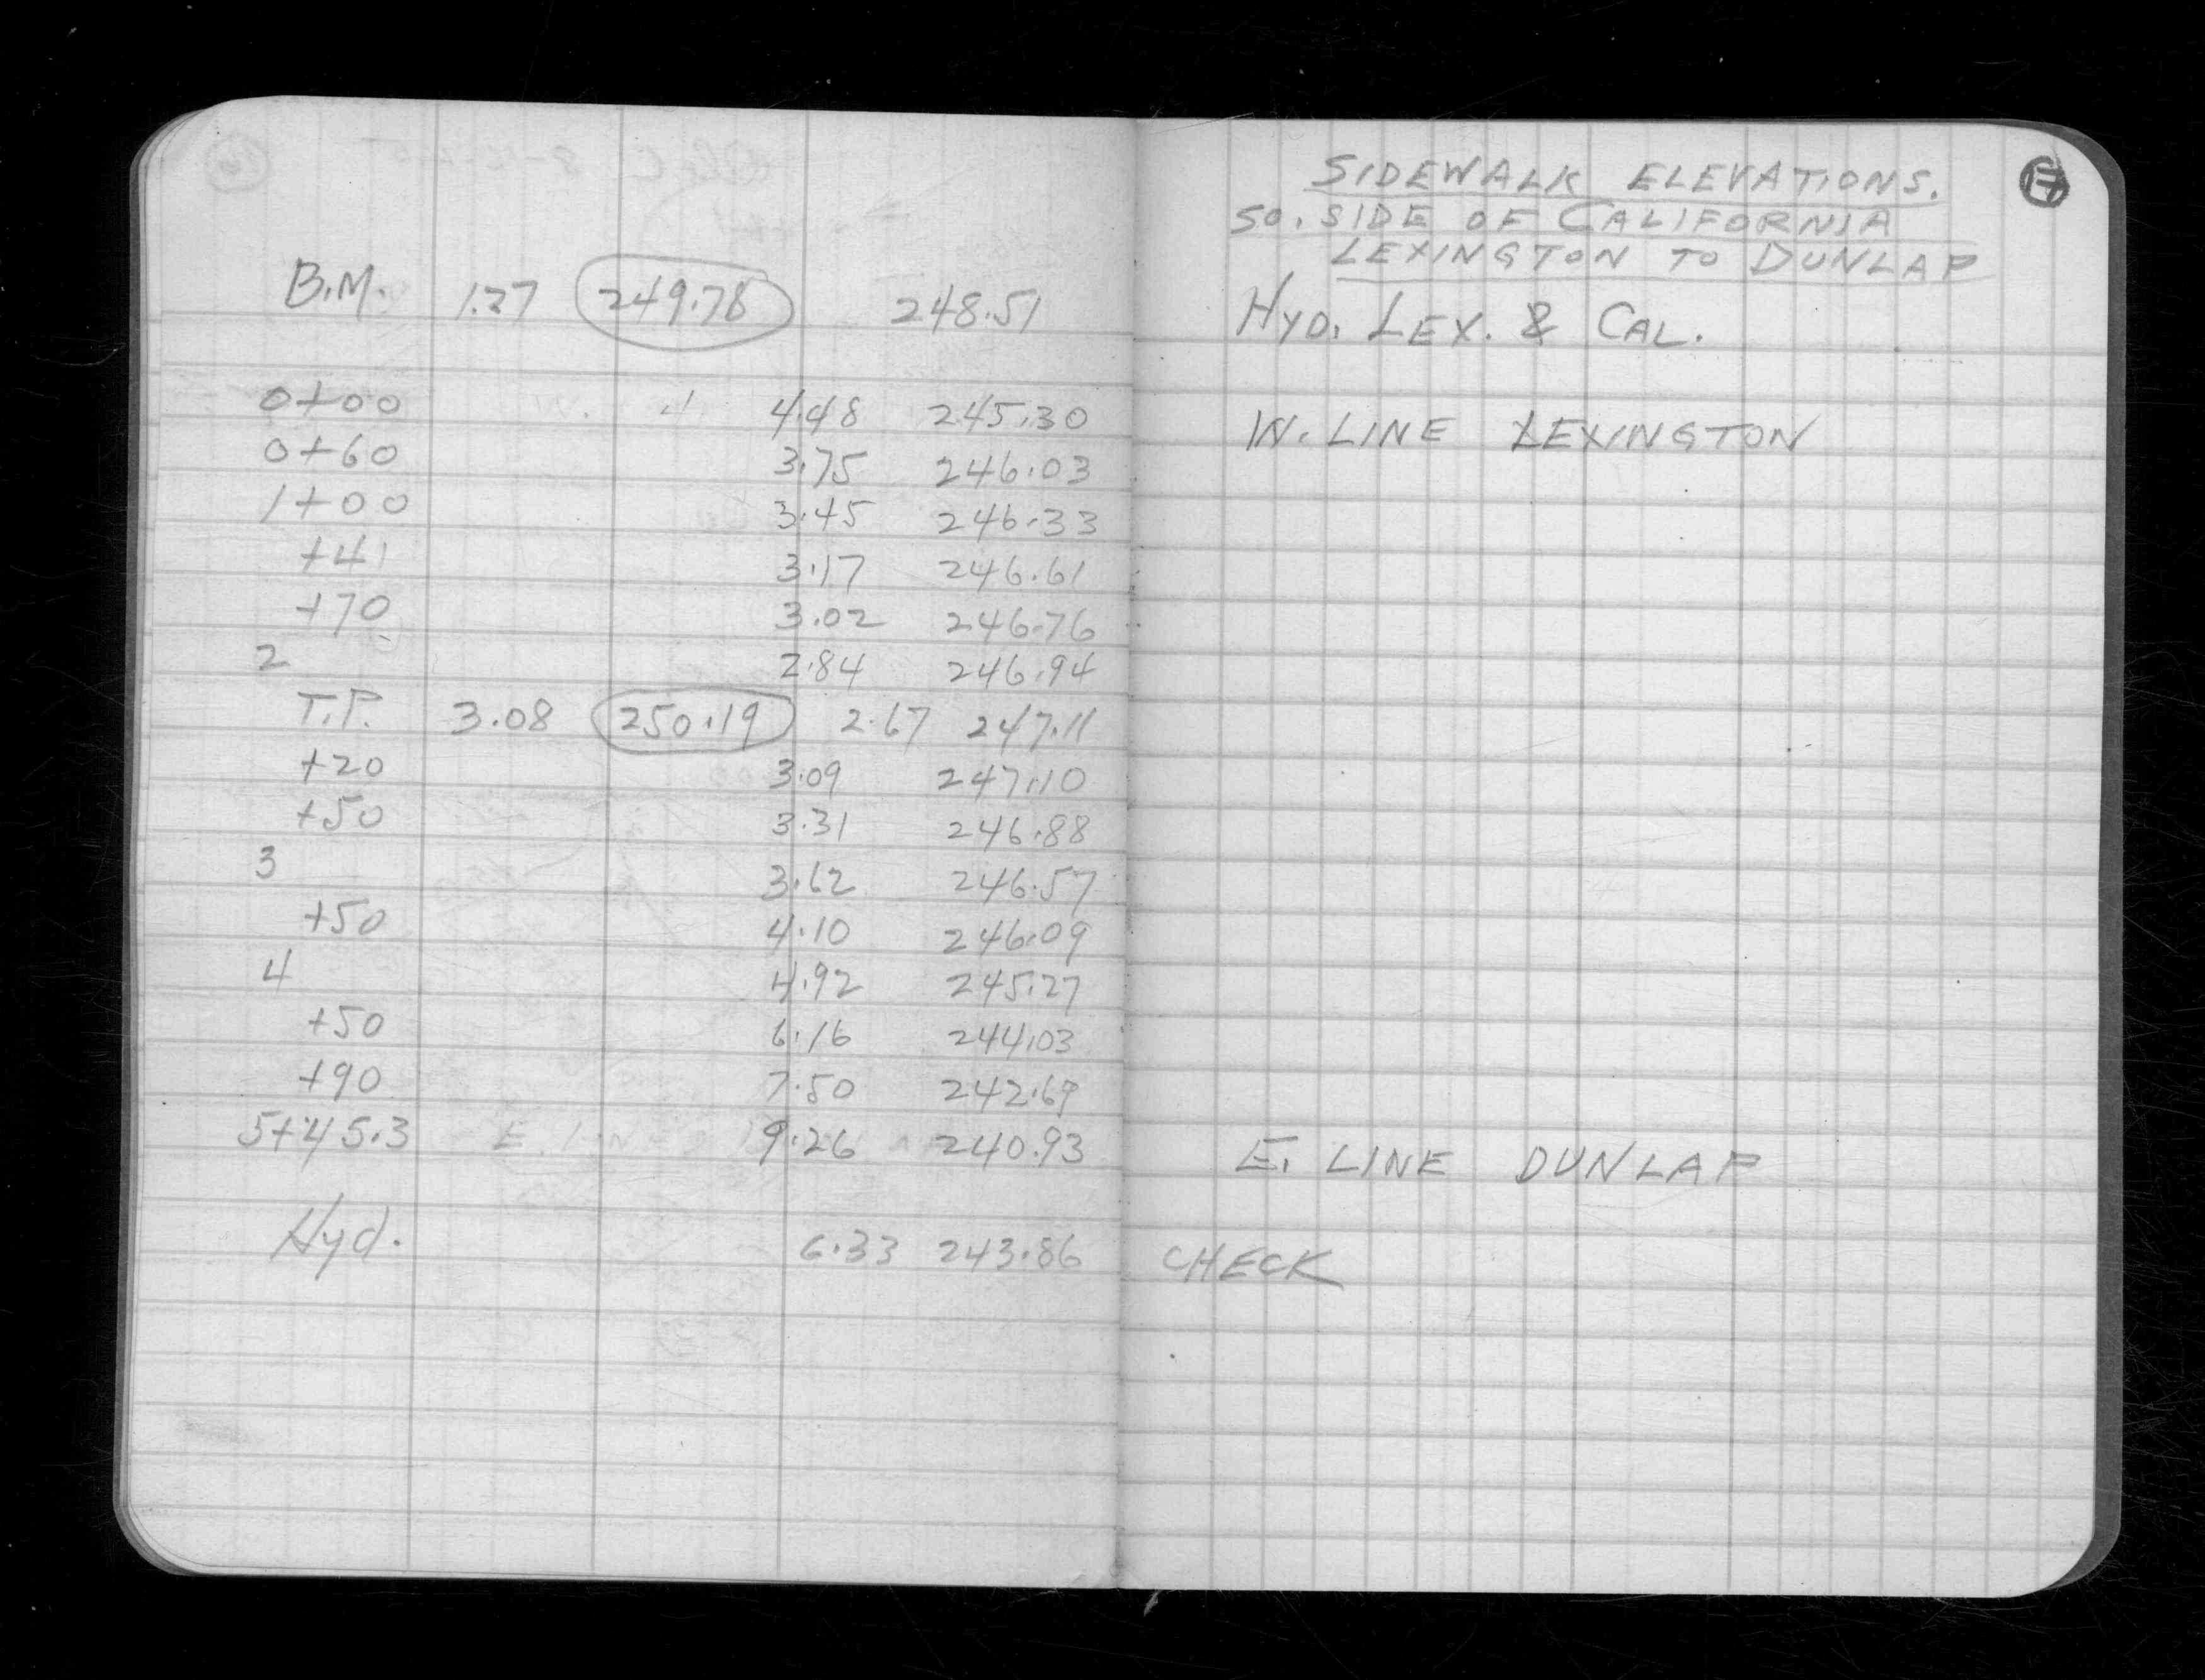 B.M. 1.27 249.78 248.51
0+00 4.48 245.30
0+60 3.75 246.03
1+00 3.45 246.33
+41 3.17 246.61
+70 3.02 246.76
2 2.84 246.94
T.P. 3.08 250.19 2.67 247.11
+20 3.09 247.10
+50 3.31 246.88
3 3.62 246.57
+50 4.10 246.09
4 4.92 245.27
+50 6.16 244.03
+90 7.50 242.69
5+45.3 9.26 240.93
Hyd. 6.33 243.86
17
SIDEWALK ELEVATIONS.
SO. SIDE OF CALIFORNIA
LEXINGTON TO DUNLAP
HYD. LEX. & CAL.
W. LINE LEXINGTON
E. LINE DUNLAP
CHECK